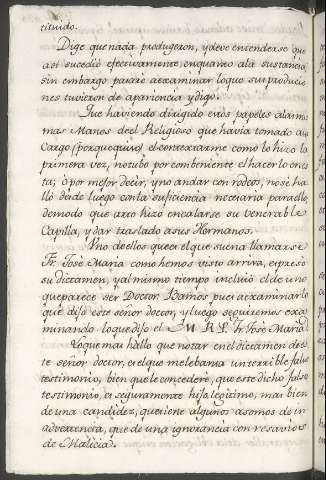 tituido.
Dige que nada produgeron, y deve entenderse que
asi sucedió efectivamente enquanto ala sustancia,
sin embargo pararé aexaminar loque sus produccio
nes tuvieron de apariencia y digo.
Que haviendo dirigido estos papeles alasmis
mas Manos del Religioso que havia tomado asu
Cargo (por quequiso) el contextarme como lo hizo la
primera vez, notubo por combeniente el hacerlo en es
ta; ò por mejor decir, y no andar con rodeos, nose ha
lló desde luego conla suficiencia necesaria para ello,
demodo que aseo hizo encalarse su venerable
Capilla, y dar traslado asus Hermanos.
Uno de ellos que es el que suena llamarse
Fr. José Maria como hemos visto arriva, expresó
su dictamen, y al mismo tiempo incluió el de uno
que parece ser Doctor Baños pues aexaminar lo
que dijo este señor doctor, y luego seguiremos exa
minando loque dijo el M. R. P. Fr. José Maria
Loque mas hallo que notar en el dictamen de es
te señor doctor, es el que me lebanta un terrible falso
testimonio, bien que le concederé, que este dicho falso
testimonio, es seguramente hijo legitimo, mas bien
de una candidez, que tiene algunos asomos de in
advertencia, que de una ignorancia con resavios
de Malicia.